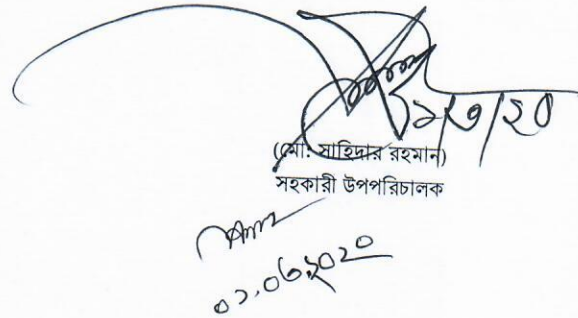 ১/৩/২০
(মো: সাহিদার রহমান)
সহকারী উপপরিচালক
০১.০৩.২০২০